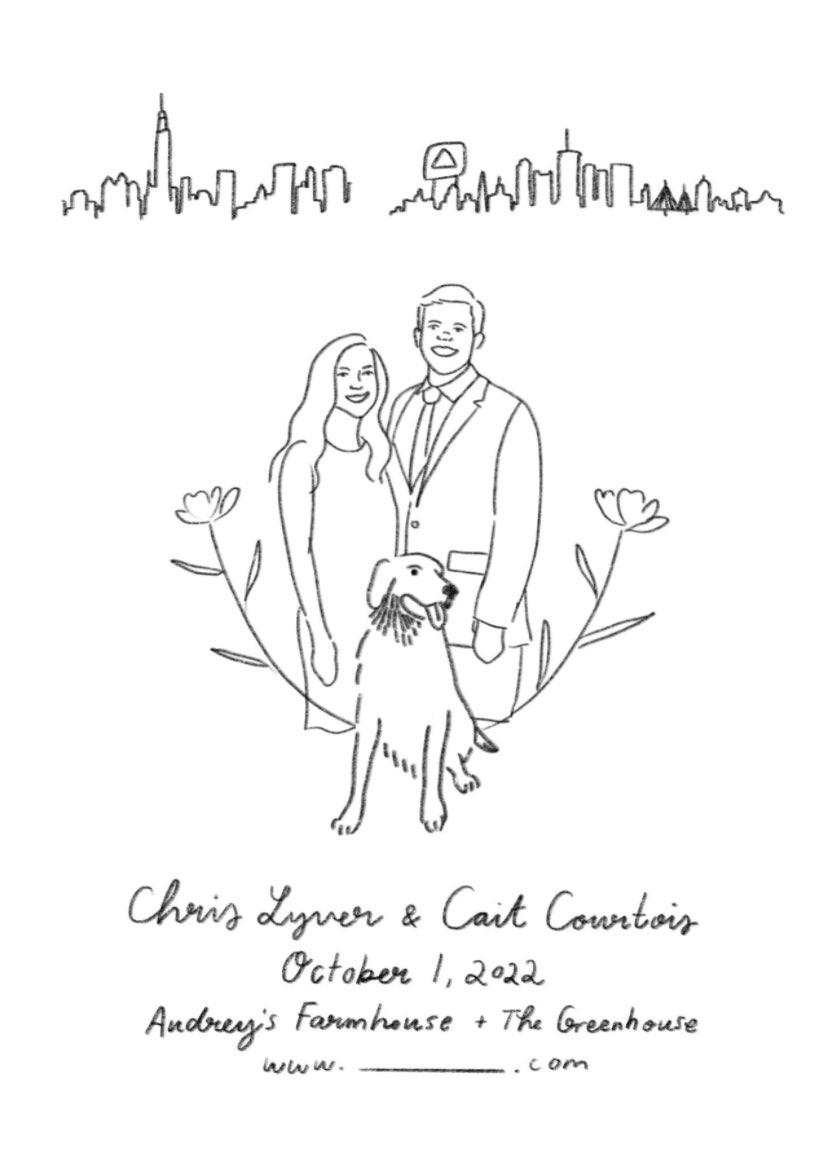 Chris Lyver & Cait Courtois
October 1, 2022
Audrey's Farmhouse + The Greenhouse
www. __________ .com